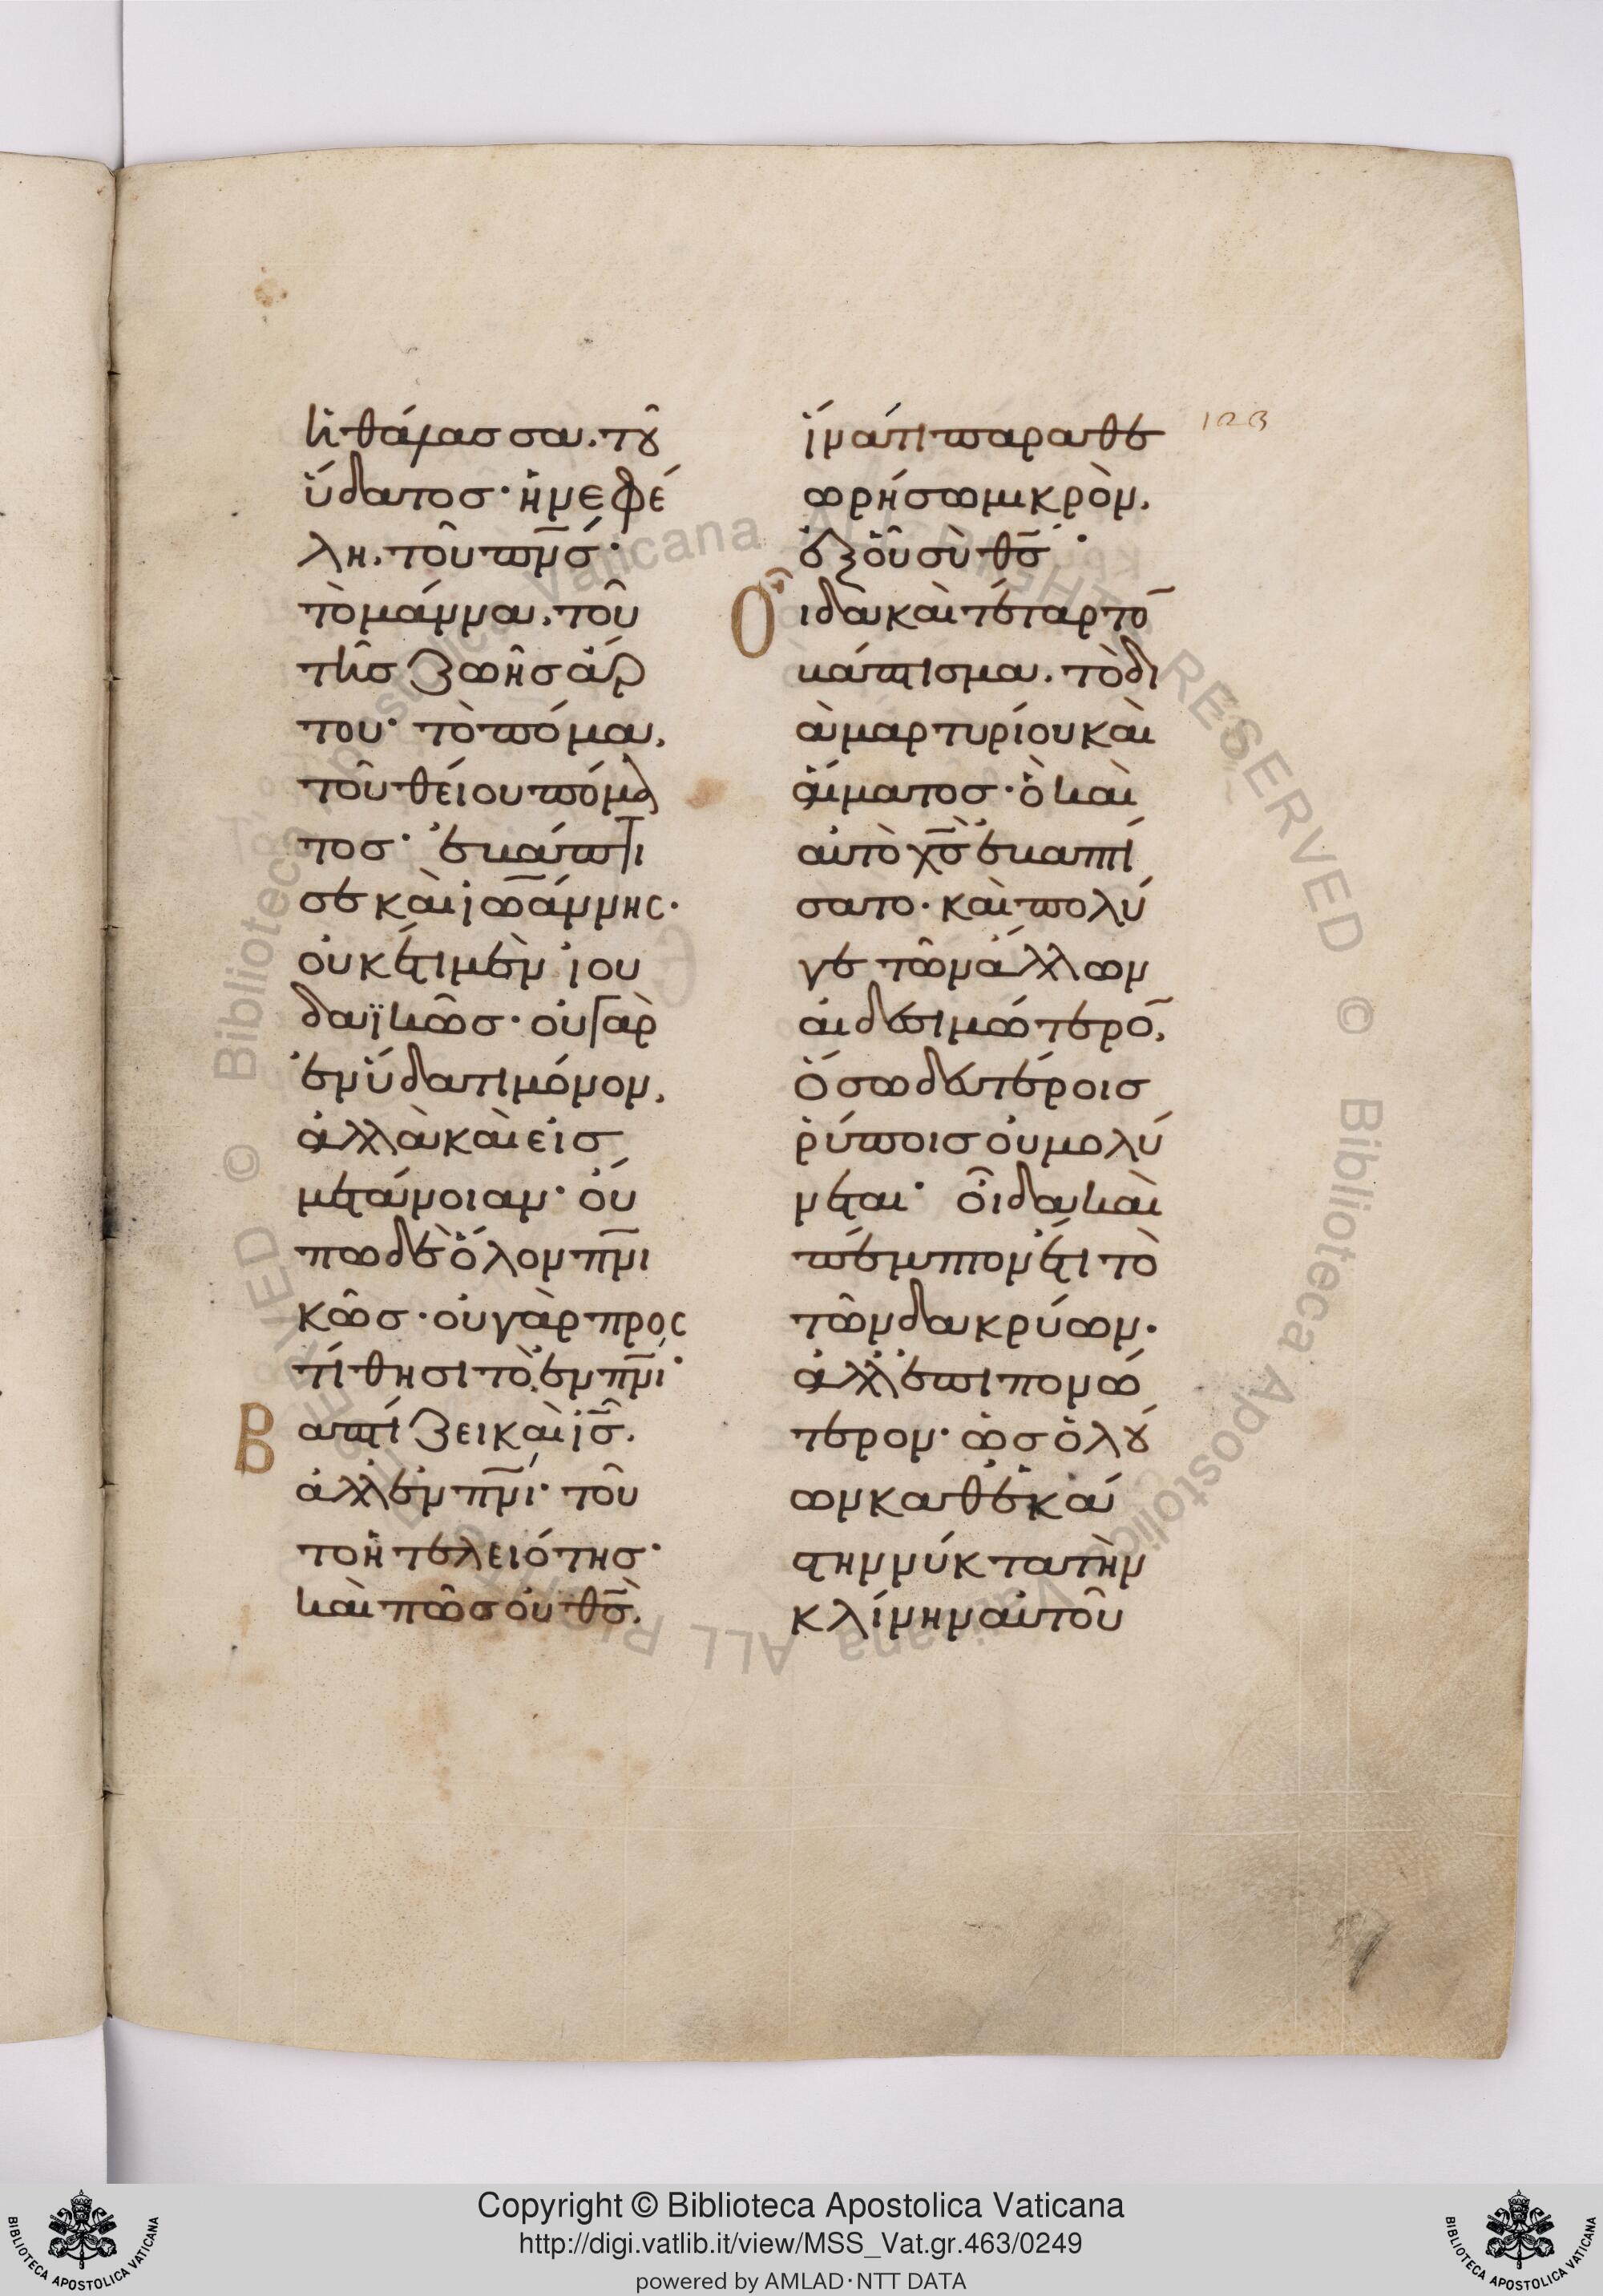 ἡ θάλασσα. τοῦ
ὕδατος· ἡ νεφέ
λη. τοῦ π̅ν̅ς̅·
τὸ μάννα. τοῦ
τῆς ζωῆς ἄρ
του· τὸ πόμα.
τοῦ θείου πόμα
τος· ἐβάπτι
σε καὶ ἰω̅άννης·
οὐκέτι μὲν ἰου
δαϊκῶς· οὐ γὰρ
ἐν ὕδατι μόνον,
ἀλλὰ καὶ εἰς
μετάνοιαν· οὔ
πω δὲ ὅλον π̅ν̅ι
κῶς· οὐ γὰρ προς
τίθησι τὸ ἐν π̅ν̅ι·
Βαπτίζει καὶ ι̅ς̅.
ἀλλ' ἐν π̅ν̅ι· τοῦ
το ἡ τελειότης·
καὶ πῶς οὐ θ̅ς̅.
ἵνά τι παραθε
ωρήσω μικρὸν,
ἐξ οὗ σὺ θ̅ς̅·
Οἶδα καὶ τέταρτο̅
βάπτισμα. τὸ δι
ὰ μαρτυρίου καὶ
αἵματος· ὃ καὶ
αὐτὸ χ̅ς̅ ἐβαπτί
σατο· καὶ πολύ
γε τῶν ἄλλων
αἰδεσιμώτερο̅,
ὅσω δευτέροις
ῥύποις οὐ μολύ
νεται· οἶδα καὶ
πέμπτον ἔτι τὸ
τῶν δακρύων·
ἀλλ' ἐπιπονώ
τερον· ὡς ὁ λού
ων καθ' ἑκά
στην νύκτα τὴν
κλίνην αὐτοῦ
123
Copyright © Biblioteca Apostolica Vaticana
http://digi.vatlib.it/view/MSS_Vat.gr.463/0249
powered by AMLAD·NTT DATA